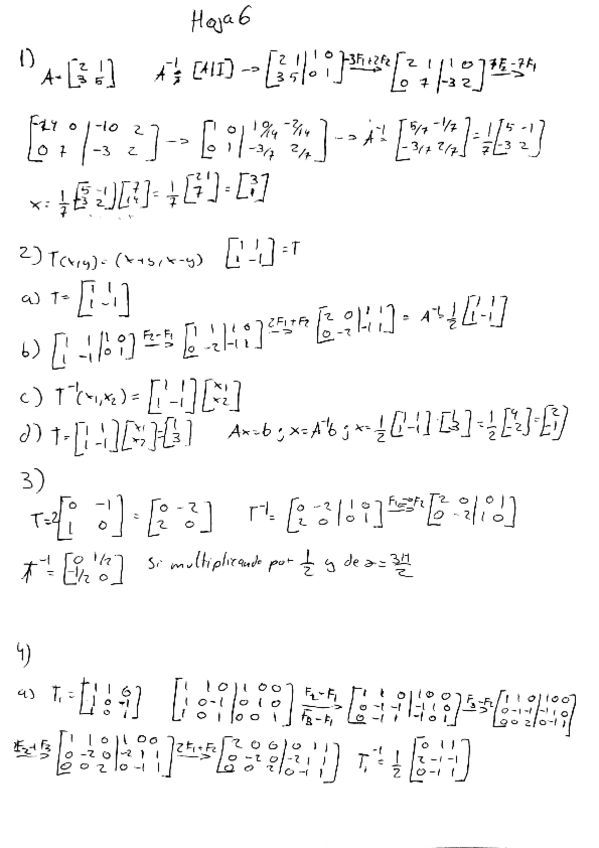 Hoja 6
1) A = [2 1; 3 5] A⁻¹ = [A|I] -> [2 1 | 1 0; 3 5 | 0 1] -3F₁+2F₂ -> [2 1 | 1 0; 0 7 | -3 2] 7F₂-7F₁
[-14 0 | -10 2; 0 7 | -3 2] -> [1 0 | 10/14 -2/14; 0 1 | -3/7 2/7] -> A⁻¹ = [5/7 -1/7; -3/7 2/7] = 1/7 [5 -1; -3 2]
x = 1/7 [5 -1; -3 2] [7; 14] = 1/7 [21; 7] = [3; 1]
2) T(x,y) = (x+y, x-y) [1 1; 1 -1] = T
a) T = [1 1; 1 -1]
b) [1 1 | 1 0; 1 -1 | 0 1] F₂-F₁ -> [1 1 | 1 0; 0 -2 | -1 1] 2F₁+F₂ -> [2 0 | 1 1; 0 -2 | -1 1] = A⁻¹ = 1/2 [1 1; 1 -1]
c) T⁻¹(x₁,x₂) = [1 1; 1 -1] [x₁; x₂]
d) T = [1 1; 1 -1] [x₁; x₂] = [1; 3] Ax=b ; x=A⁻¹b ; x = 1/2 [1 1; 1 -1] · [1; 3] = 1/2 [4; -2] = [2; -1]
3)
T = 2 [0 -1; 1 0] = [0 -2; 2 0] T⁻¹ = [0 -2 | 1 0; 2 0 | 0 1] F₁<->F₂ [2 0 | 0 1; 0 -2 | 1 0]
T⁻¹ = [0 1/2; -1/2 0] Si multiplicando por 1/2 y de = 3π/2
4)
a) T₁ = [1 1 0; 1 0 -1; 1 0 1] [1 1 0 | 1 0 0; 1 0 -1 | 0 1 0; 1 0 1 | 0 0 1] F₂-F₁ F₃-F₁ -> [1 1 0 | 1 0 0; 0 -1 -1 | -1 1 0; 0 -1 1 | -1 0 1] F₃-F₂ -> [1 1 0 | 1 0 0; 0 -1 -1 | -1 1 0; 0 0 2 | 0 -1 1]
2F₂+F₃ -> [1 1 0 | 1 0 0; 0 -2 0 | -2 1 1; 0 0 2 | 0 -1 1] 2F₁+F₂ -> [2 0 0 | 0 1 1; 0 -2 0 | -2 1 1; 0 0 2 | 0 -1 1] T₁⁻¹ = 1/2 [0 1 1; 2 -1 -1; 0 -1 1]